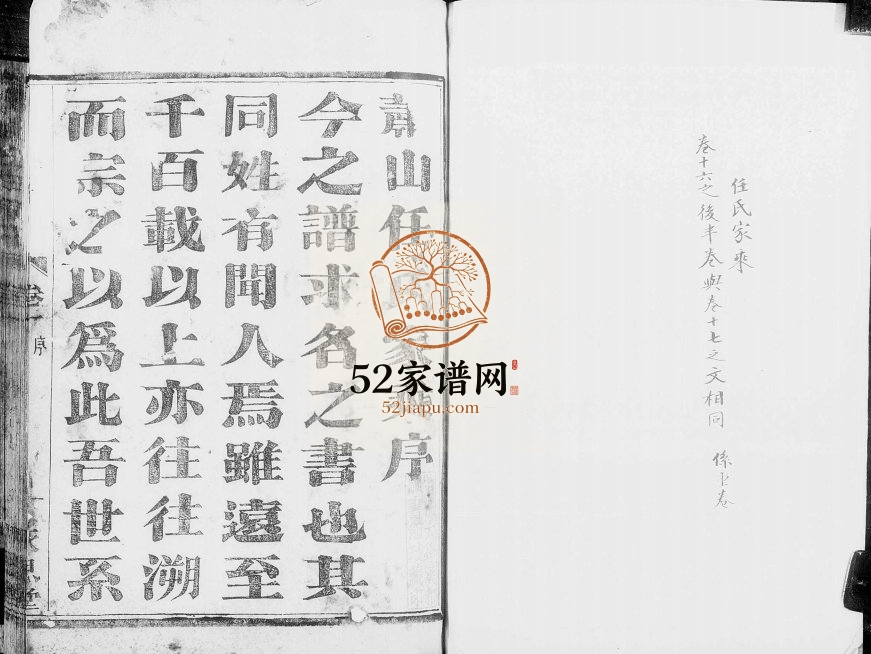 任氏家乘
卷十六之後半卷與卷十七之文相同 係
卷
青山任氏家乘序
今之譜求名之書也其
同姓有聞人焉雖遠至
千百載以上亦往往溯
而宗之以爲此吾世系
卷一
序
52家谱网
52jiapu.com